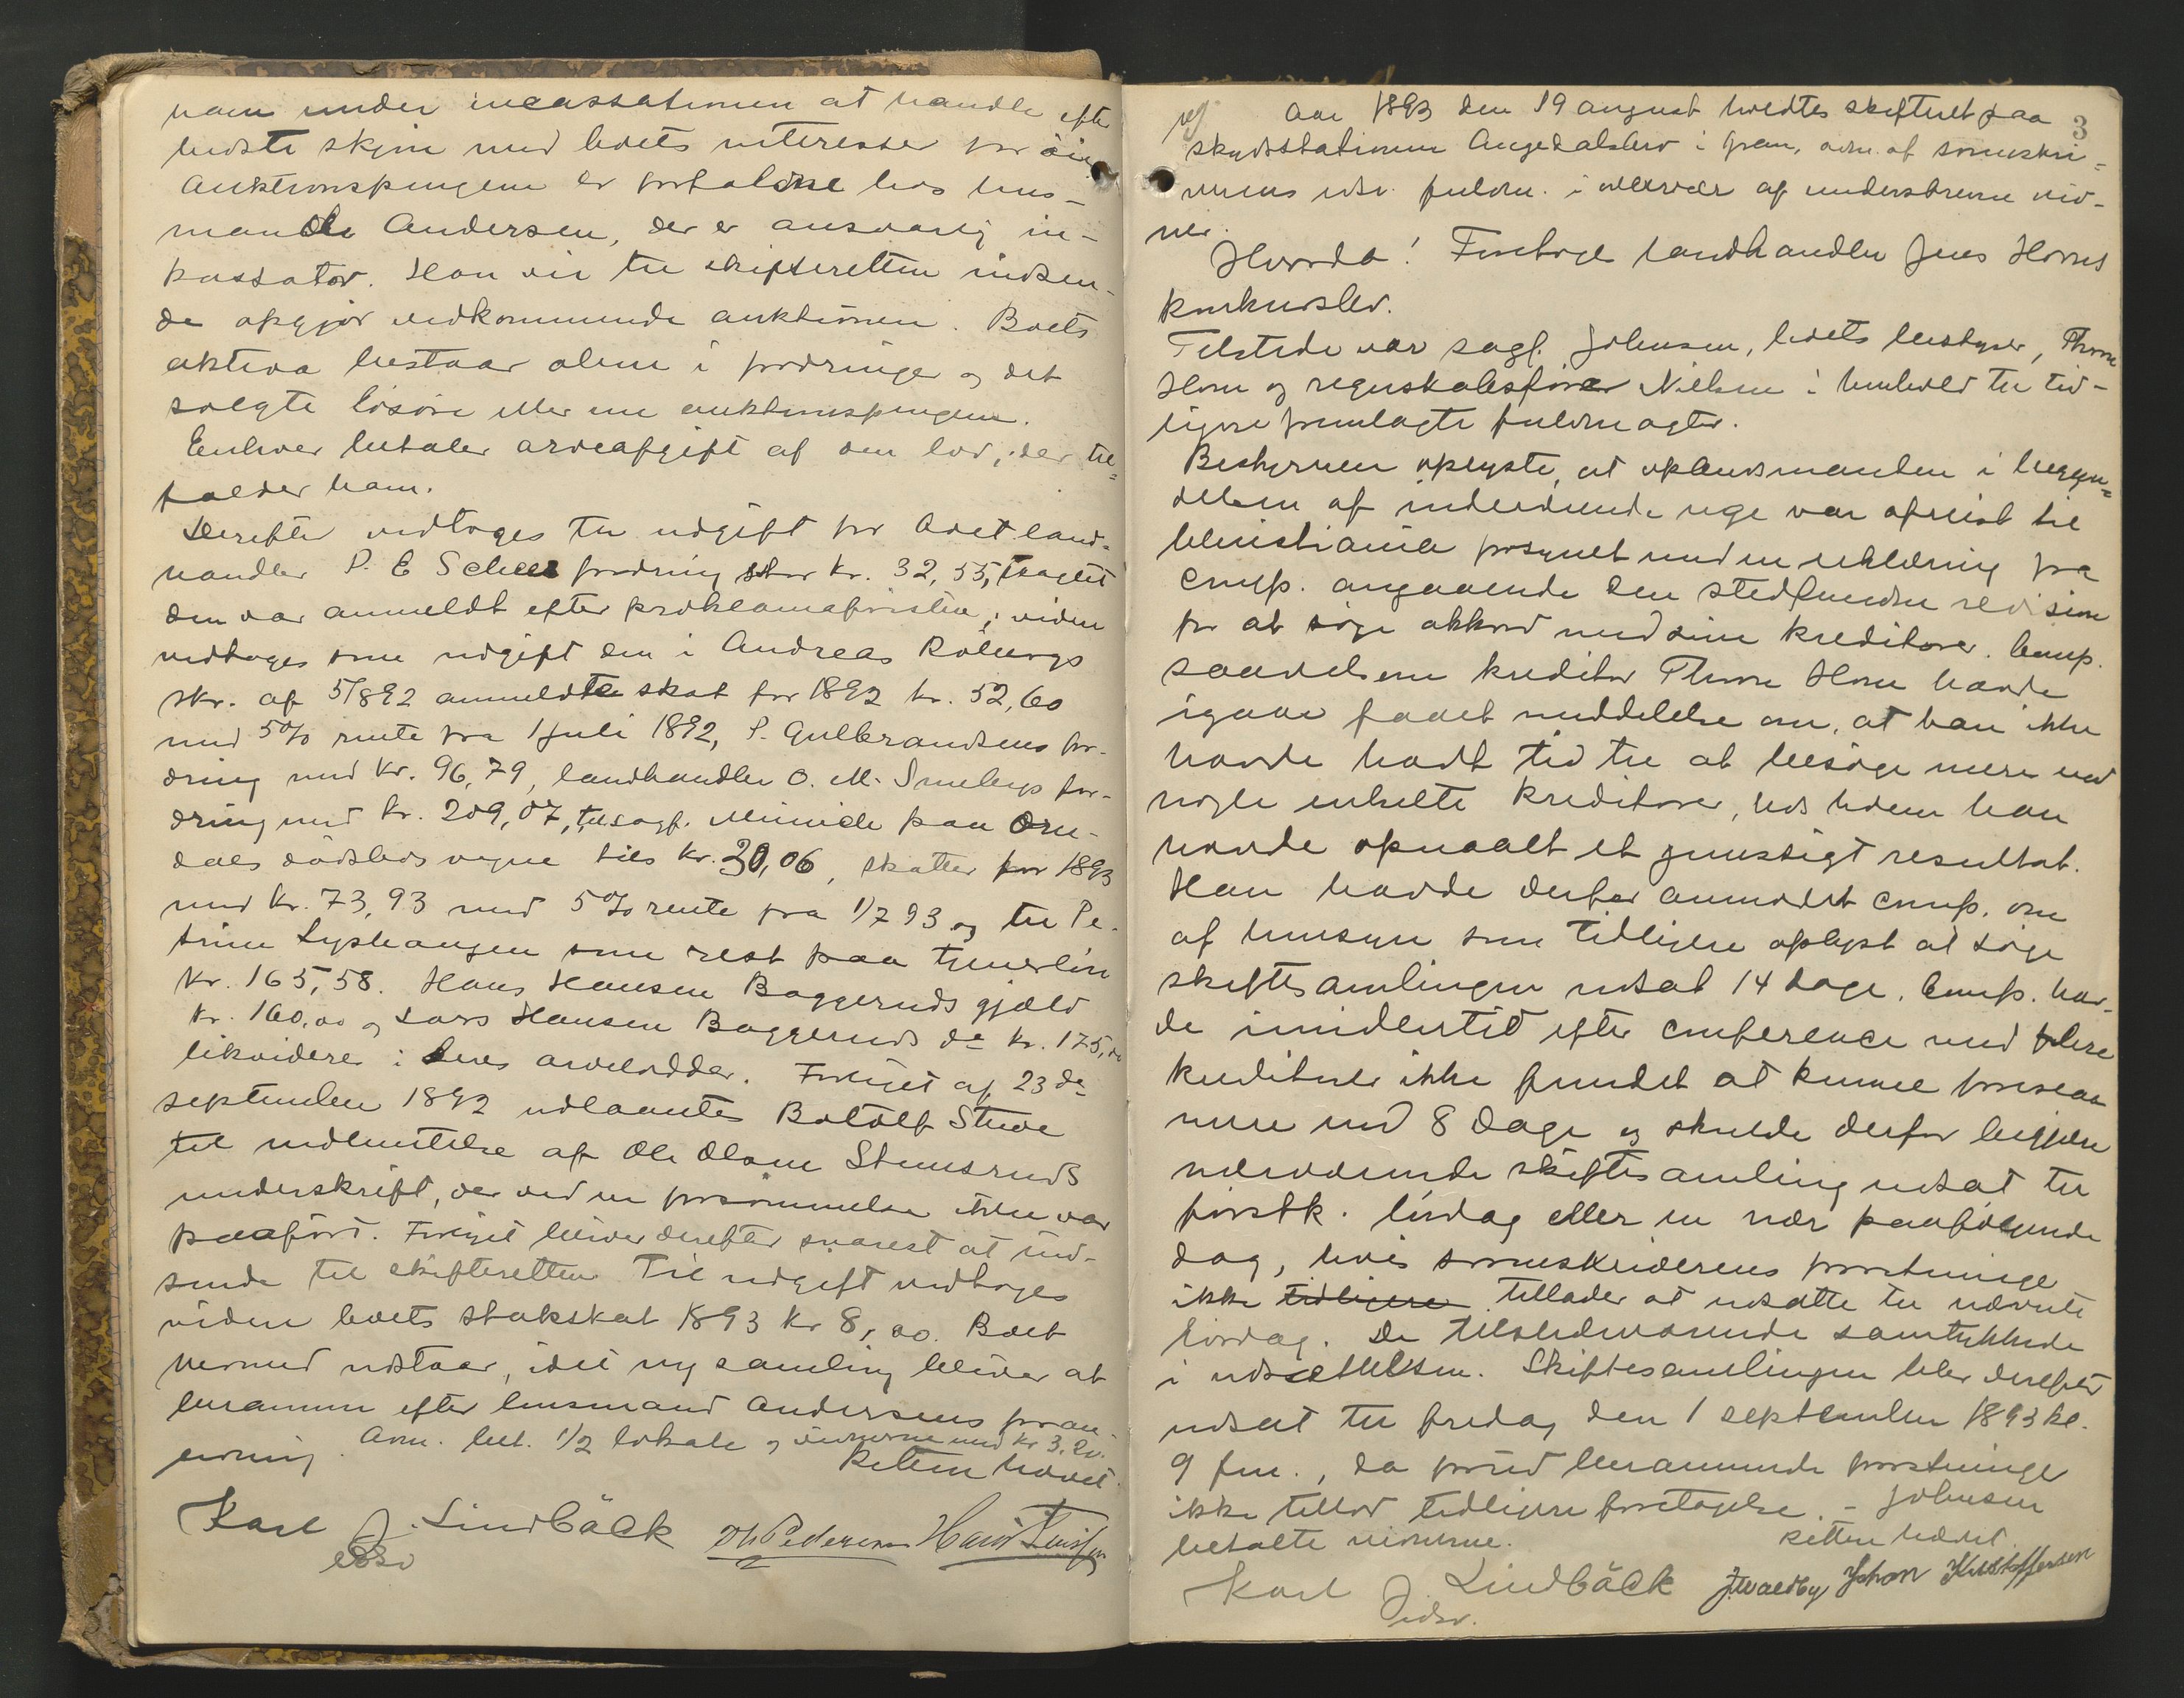 ham under incassationen at handle efter
bedste skjøn med boets interesse for øie
Auktionspengene er forfaldne hos lens-
mand Andersen, der er ansvarlig in-
kassator. Han vil til skifteretten indsen-
de opgjør vedkommende auktionen. Boets
aktiva bestaar alene i fordringer og det
solgte løsøre eller nu auktionspengene.
Enhver betaler arveafgift af den lod, der til-
falder ham.
Derefter vedtoges til udgift for boet land-
handler P. E Scheer fordring stor kr. 32,55, skjønt
den var anmeldt efter proklamafristen, viden
vedtoges som udgift den i Andreas Røbergs
skr. af 5/892 anmeldte skat for 1892 kr. 52,60
med 5% rente fra 1 juli 1892, P. Gulbrandsens for-
dring med kr. 96,79, landhandler O. M. Smebys for-
dring med kr. 209,07, til sagf. paa
dals dødsbos vegne kr. 30,06, skatter for 1893
med kr. 73,93 med 5% rente fra 1/7 93 og til Pe-
trine som rest paa tjenerløn
kr. 165,58. Hans Hansen Baggeruds gjæld
kr. 160,00 og Lars Hansen Baggeruds do kr. 175,00
likvideres i deres arvelodder. Forliget af 23de
september 1892 udlaantes Botolf Stuve
til indhentelse af Ole Olsen Stensruds
underskrift, der ved en forsømmelse ikke var
paaført. Forliget bliver derefter snarest at ind-
sende til skifteretten. Til udgift vedtoges
viden boets skatskat 1893 kr 8,00. Boet
hermed udstaar, idet ny samling bliver at
beramme efter lensmand Andersens foran-
ledning. Adm. bet. 1/2 lokale og vidnerne med kr 3,20.
Retten hævet.
Karl J. Lindbäck Ol. Pedersen Hans
edsv
Aar 1893 den 19 august holdtes skifteret paa 3
skydsstationen Augedalsbro i Gran, adm. af sorenskri-
verens edsv. fuldm. i nærvær af understrevne vid-
ner.
Hvorda! Foretoges landhandler Jens Horns
konkursbo.
Tilstede var sagf. Johnsen, boets bestyrer, Thorer
Horn og regnskabsfører Nielsen i henhold til tid-
ligere fremlagte fuldmagter.
Bestyreren oplyste, at opbudsmanden i begyn-
delsen af indeværende uge var afreist til
Christiania forsynet med en erklæring fra
comp. angaaende den stedfundne revision
for at søge akkord med sine kreditorer. Comp.
saavelsom kreditor Thorer Horn havde
igaar faaet meddelelse om, at han ikke
havde havt tid til at besøge mere end
nogle enkelte kreditorer, hos hvem han
havde opnaaet et gunstigt resultat.
Han havde derfor anmodet comp. om
af hensyn som tidligere oplyst at søge
skiftesamlingen udsat 14 dage. Comp. hav-
de imidlertid efter conference med flere
kreditorer ikke fundet at kunne foreslaa
mere end 8 dage og skulde derfor begjære
nærværende skiftesamling udsat til
førstk. lørdag eller en nær paafølgende
dag, hvis sorenskriverens forretninger
ikke tidligere tillader at udsætte til nævnte
lørdag. De tilstedeværende samtykkede
i udsættelsen. Skiftesamlingen blev derefter
udsat til fredag den 1 september 1893 kl.
9 fm., da forud berammede forretninger
ikke tillod tidligere foretagelse. - Johnsen
betalte vidnerne. Retten hævet.
Karl J. Lindbäck Johan Kristoffersen
edsv.